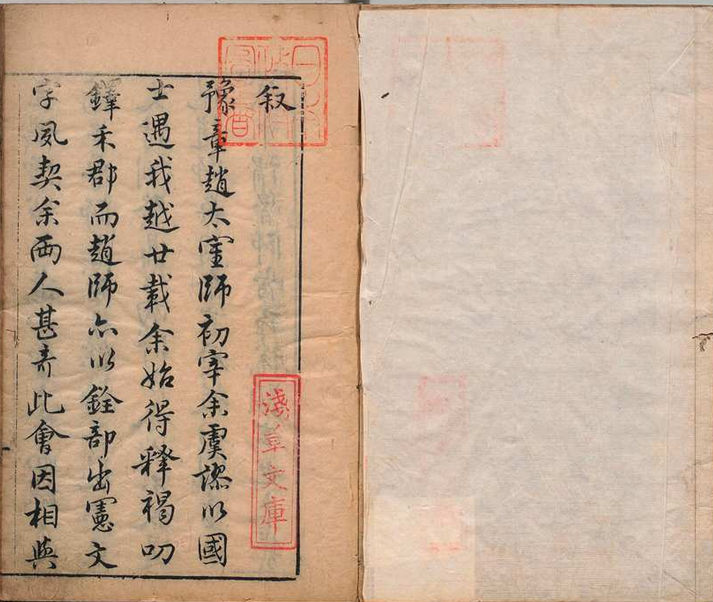 叙
豫章趙太室師初宰余虞謬以國
士遇我越廿載余始得释褐叨
鐸禾郡而趙師亦以銓部出憲文
字夙契余两人甚奇此會因相與
淺草文庫